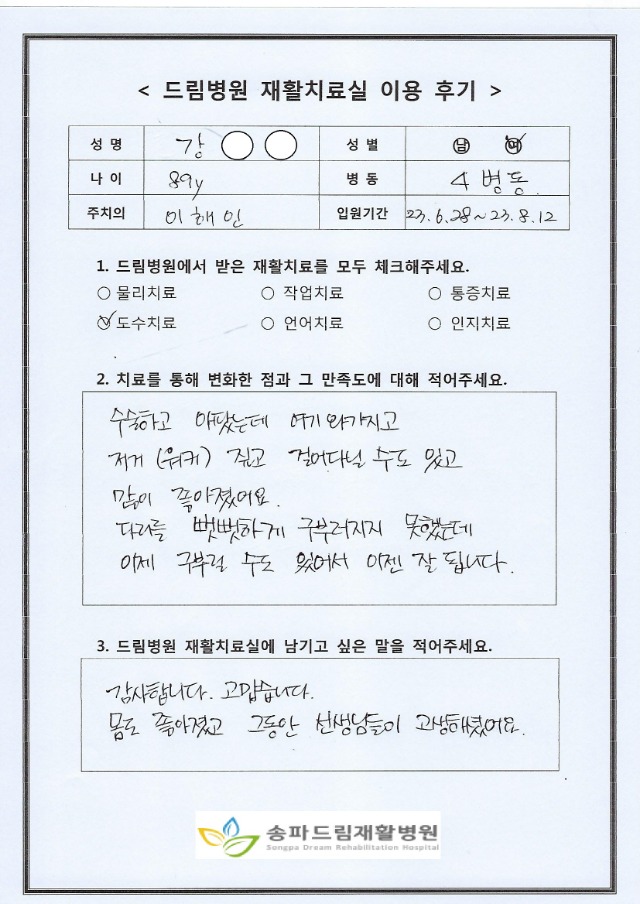 < 드림병원 재활치료실 이용 후기 >
성 명 강 ○○ 성 별 남 여
나 이 89y 병 동 4 병동.
주치의 이해인 입원기간 23.6.28~23.8.12
1. 드림병원에서 받은 재활치료를 모두 체크해주세요.
○ 물리치료 ○ 작업치료 ○ 통증치료
○ 도수치료 ○ 언어치료 ○ 인지치료
2. 치료를 통해 변화한 점과 그 만족도에 대해 적어주세요.
수술하고 아팠는데 여기 와가지고
저거 (워커) 짚고 걸어다닐 수도 있고
많이 좋아졌어요.
다리를 뻣뻣하게 구부러지지 못했는데
이제 구부릴 수도 있어서 이젠 잘 됩니다.
3. 드림병원 재활치료실에 남기고 싶은 말을 적어주세요.
감사합니다. 고맙습니다.
몸도 좋아졌고 그동안 선생님들이 고생해셨어요.
송파드림재활병원
Songpa Dream Rehabilitation Hospital